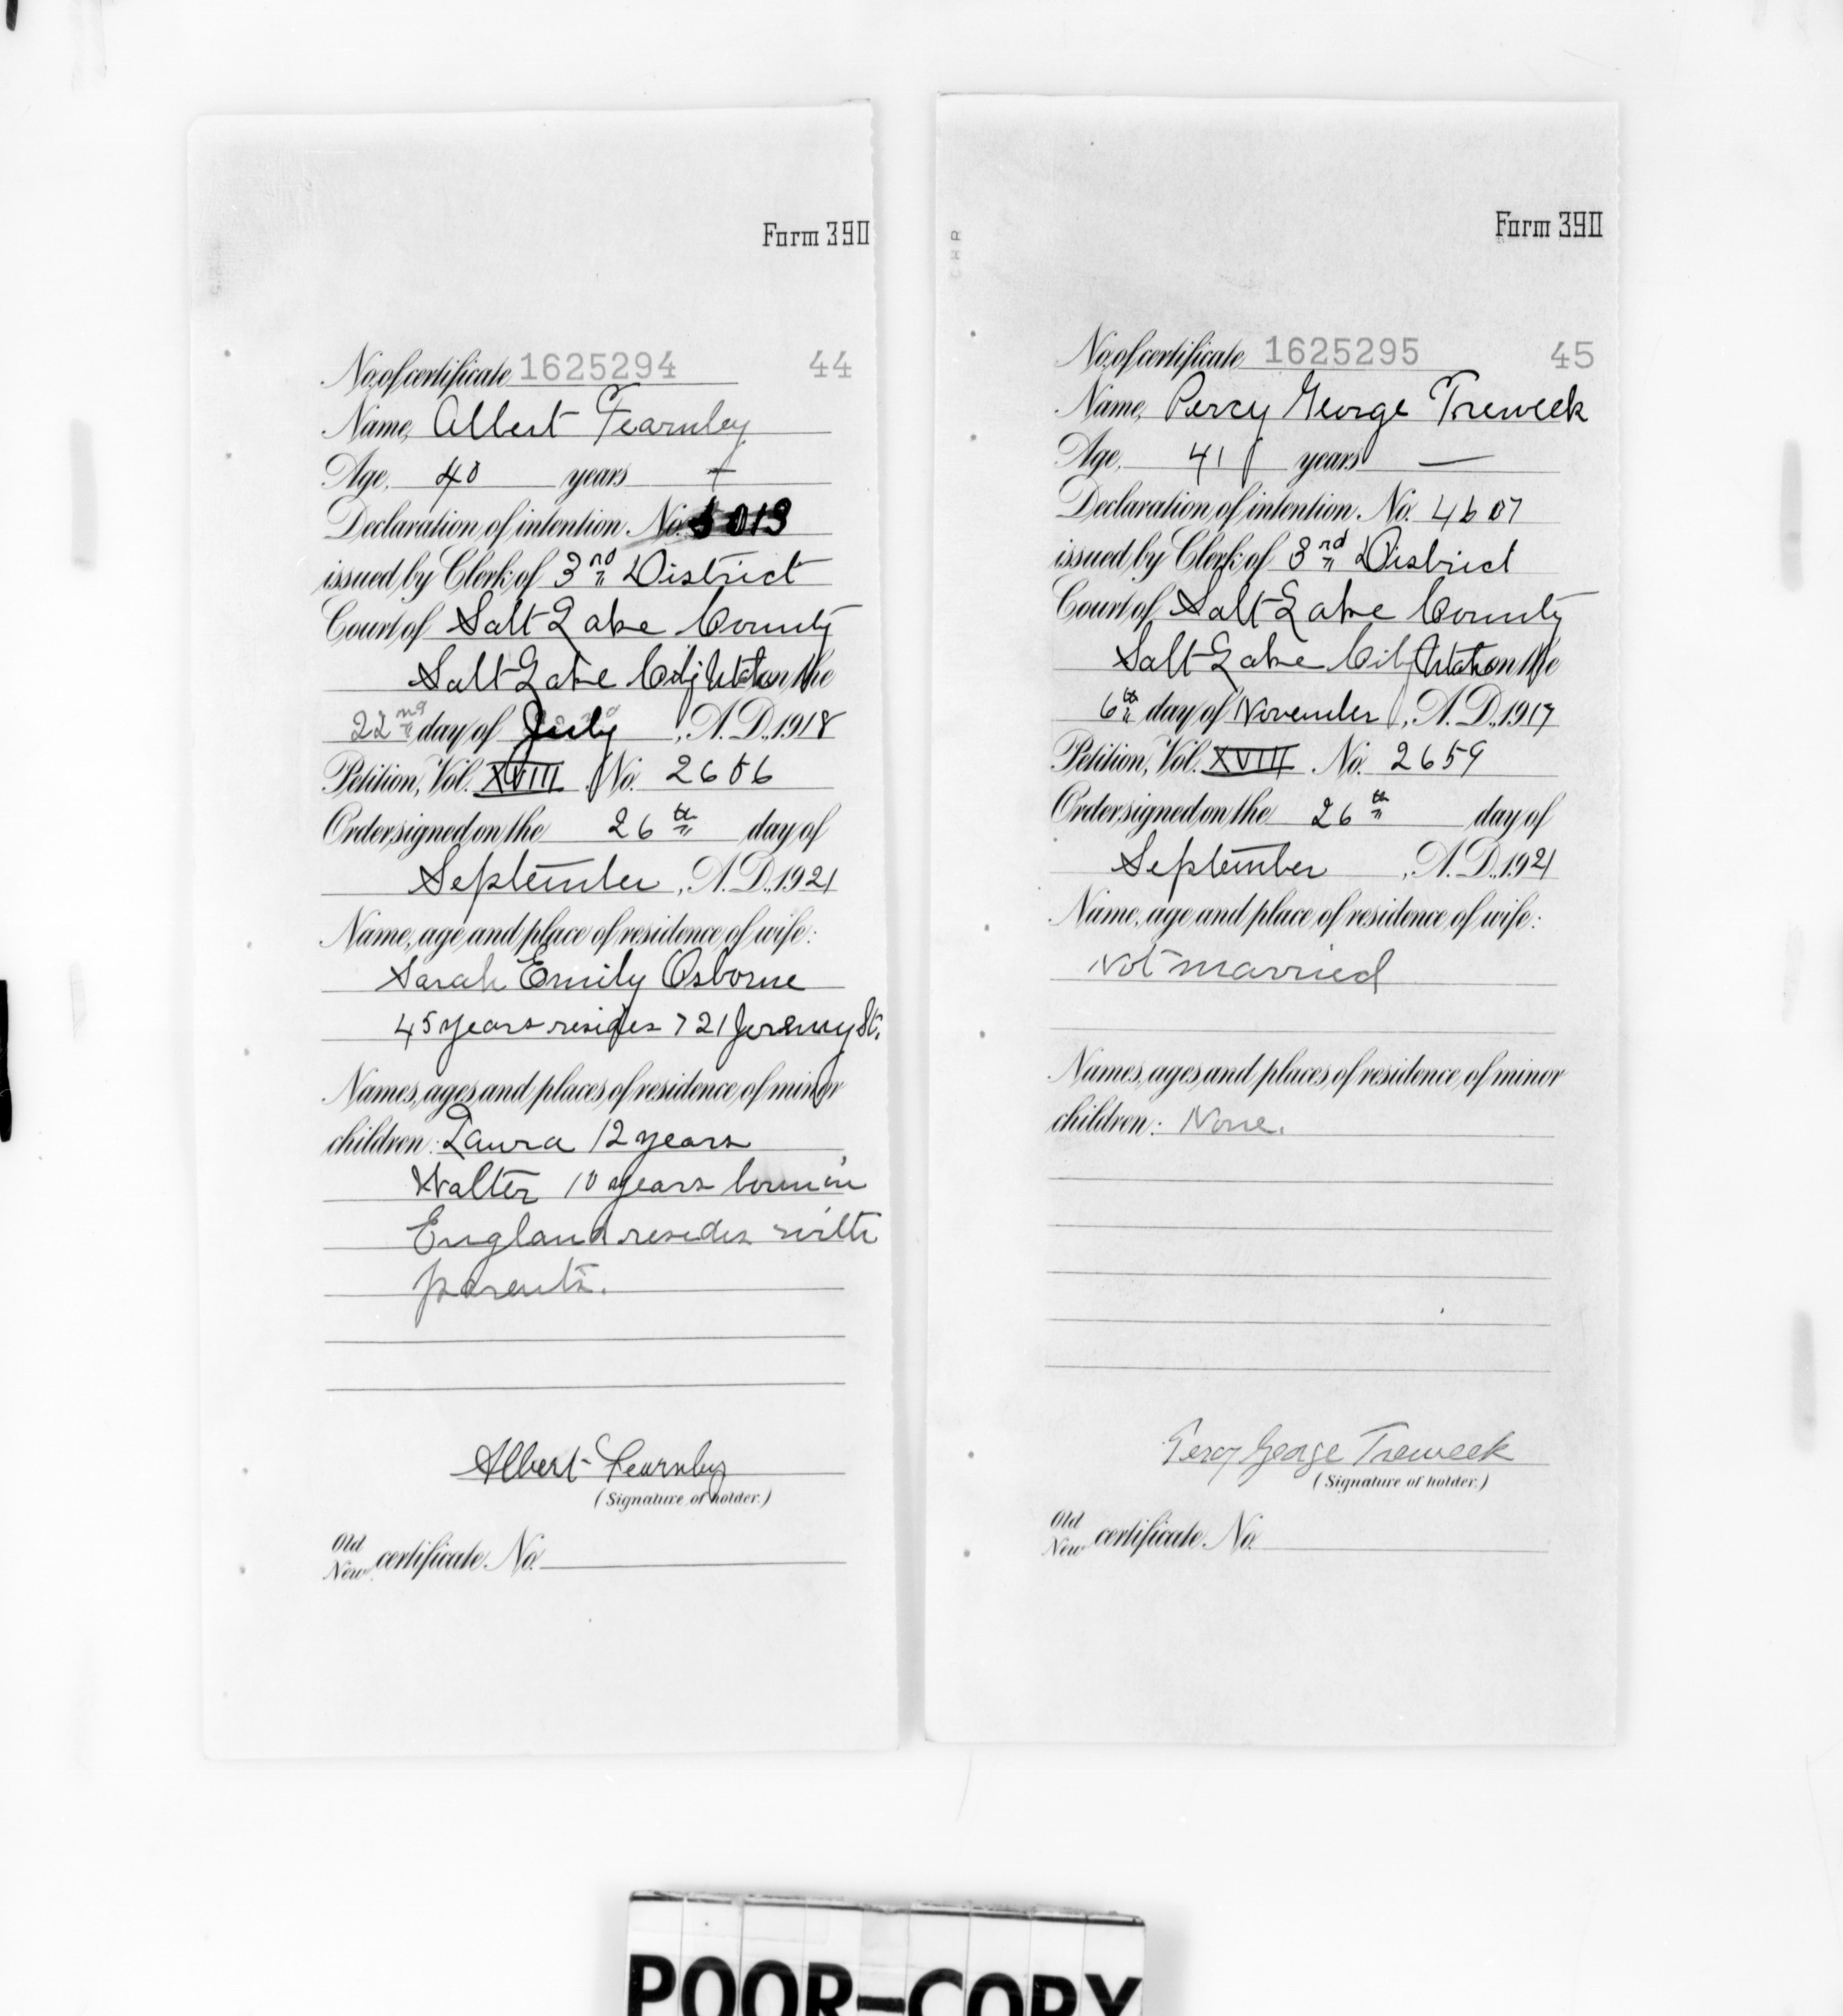 Form 390
No. of certificate 1625294 44
Name, Albert Fearnley
Age, 40 years —
Declaration of intention No. 5013
issued by Clerk of 3rd District
Court of Salt Lake County
Salt Lake City Utah on the
22nd day of July, A.D., 1918
Petition, Vol. XVIII No. 2606
Order signed on the 26th day of
September, A.D., 1921
Name, age and place of residence of wife:
Sarah Emily Osborne
45 years resides 721 Jeremy St.
Names, ages, and places of residence of minor
children: Laura 12 years
Walter 10 years born in
England resides with
parents.
Albert Fearnley
(Signature of holder.)
Old
New certificate No.
Form 390
CHR
No. of certificate 1625295 45
Name, Percy George Treweek
Age, 41 years —
Declaration of intention No. 4607
issued by Clerk of 3rd District
Court of Salt Lake County
Salt Lake City Utah on the
6th day of November, A.D., 1917
Petition, Vol. XVIII No. 2659
Order signed on the 26th day of
September, A.D., 1921
Name, age and place of residence of wife:
Not married
Names, ages, and places of residence of minor
children: None.
Percy George Treweek
(Signature of holder.)
Old
New certificate No.
POOR-COPY